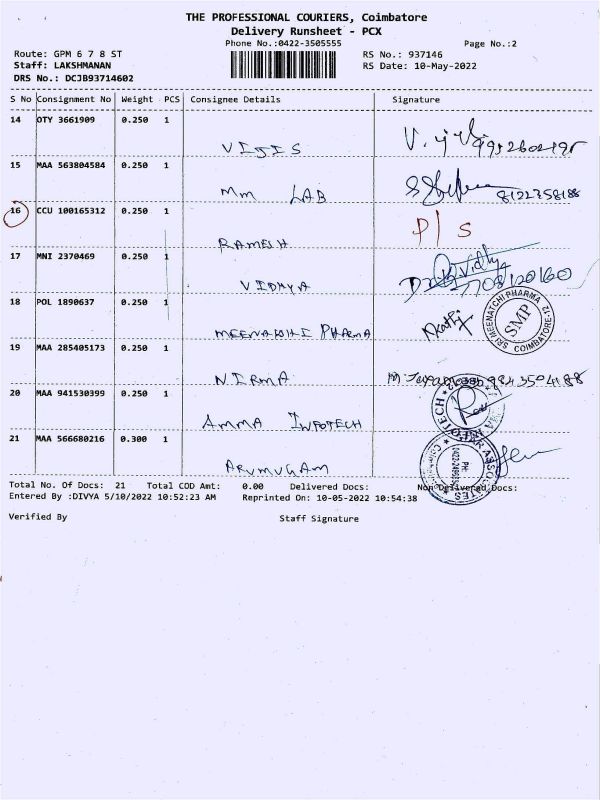 THE PROFESSIONAL COURIERS, Coimbatore
Delivery Runsheet - PCX
Phone No.:0422-3505555
Page No.:2
Route: GPM 6 7 8 ST
RS No.: 937146
Staff: LAKSHMANAN
RS Date: 10-May-2022
DRS No.: DCJB93714602
S No Consignment No Weight PCS Consignee Details Signature
14 OTY 3661909 0.250 1
VIJIS
15 MAA 563804584 0.250 1
Mm LAB 8122758188
16 CCU 100165312 0.250 1 P/S
RAMESH
17 MNI 2370469 0.250 1 Vidhya
VIDHYA 7708120160
18 POL 1890637 0.250 1
MEENAKSHI PHARMA
SRI MEENATCHI PHARMA SMP COIMBATORE-12
19 MAA 285405173 0.250 1
NIRMA
20 MAA 941530399 0.250 1
AMMA INFOTECH
21 MAA 566680216 0.300 1
ARUMUGAM
Total No. Of Docs: 21 Total COD Amt: 0.00 Delivered Docs: Non Delivered Docs:
Entered By :DIVYA 5/10/2022 10:52:23 AM Reprinted On: 10-05-2022 10:54:38
Verified By Staff Signature